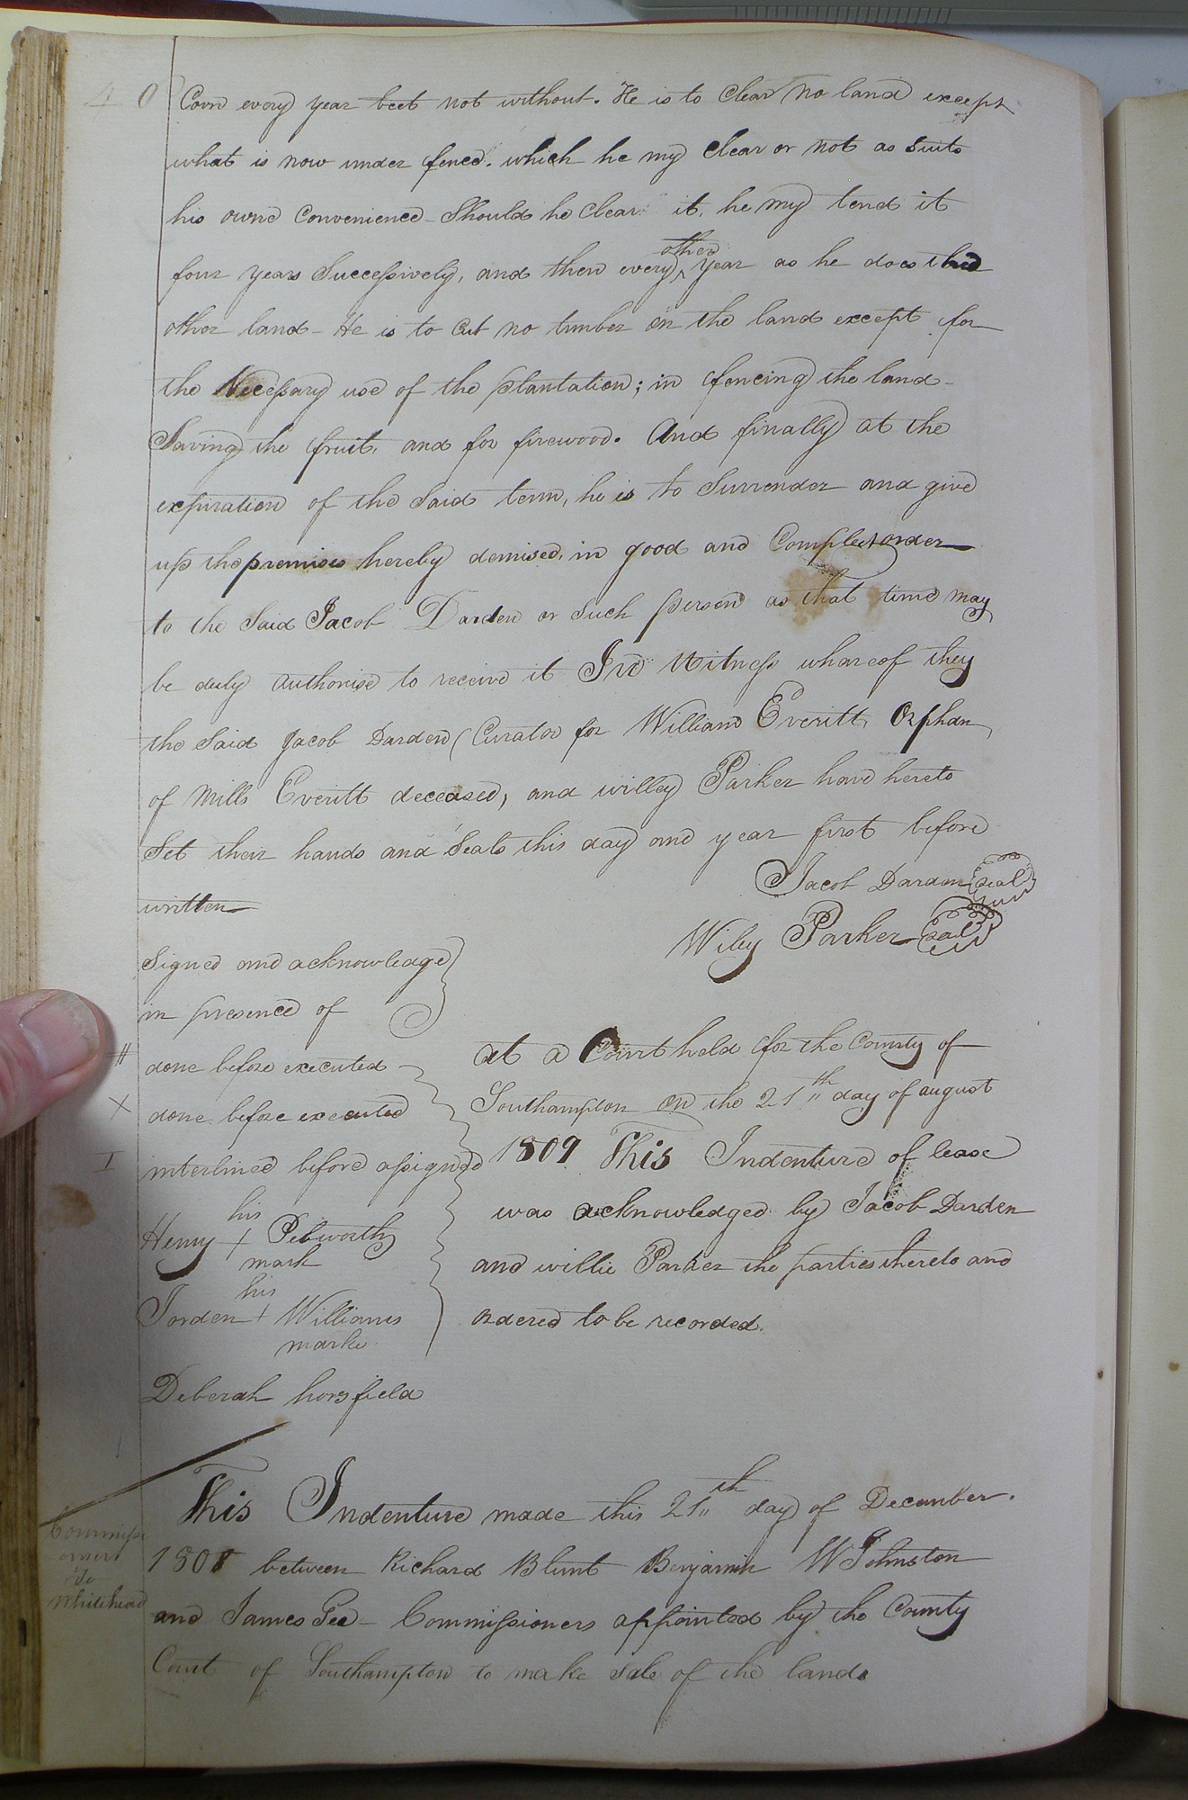 40
Corn every year beet not without. He is to Clear no land except
what is now under fence. which he my Clear or not as Suits
his owne Convenience - Should he Clear it, he my tend it
four years Successively, and then every other year as he does the
other land - He is to Cut no timber on the land except for
the Necessary use of the plantation; in fencing the land -
Saving the fruit, and for firewood. And finally at the
expiration of the Said term, he is to Surrender and give
up the premises hereby demised, in good and Compleat order
to the Said Jacob Darden or Such person as that time may
be duly Authorise to receive it In Witness whareof they
the Said Jacob Darden (Curator for William Everitt, Orphan
of Mills Everitt deceased, and willey Parker have hereto
Set their hands and Seals this day and year first before
written
Jacob Darden Seal
Wiley Parker Seal
Signed and acknowledge
in presence of
# done before executed
X done before executed
I interlined before assigned
Henry his + mark Pebworth
Jorden his + marke Williams
Deberah horsfield
at a Court held for the County of
Southampton on the 21th day of august
1809 This Indenture of lease
was acknowledged by Jacob Darden
and willie Parker the parties thereto and
ordered to be recorded.
Commissi
oners
To
Whitehead
This Indenture made this 21th day of December.
1808 between Richard Blunt Benjamin W Johnston
and James Gee - Commissioners appointed by the County
Court of Southampton to make sale of the lands